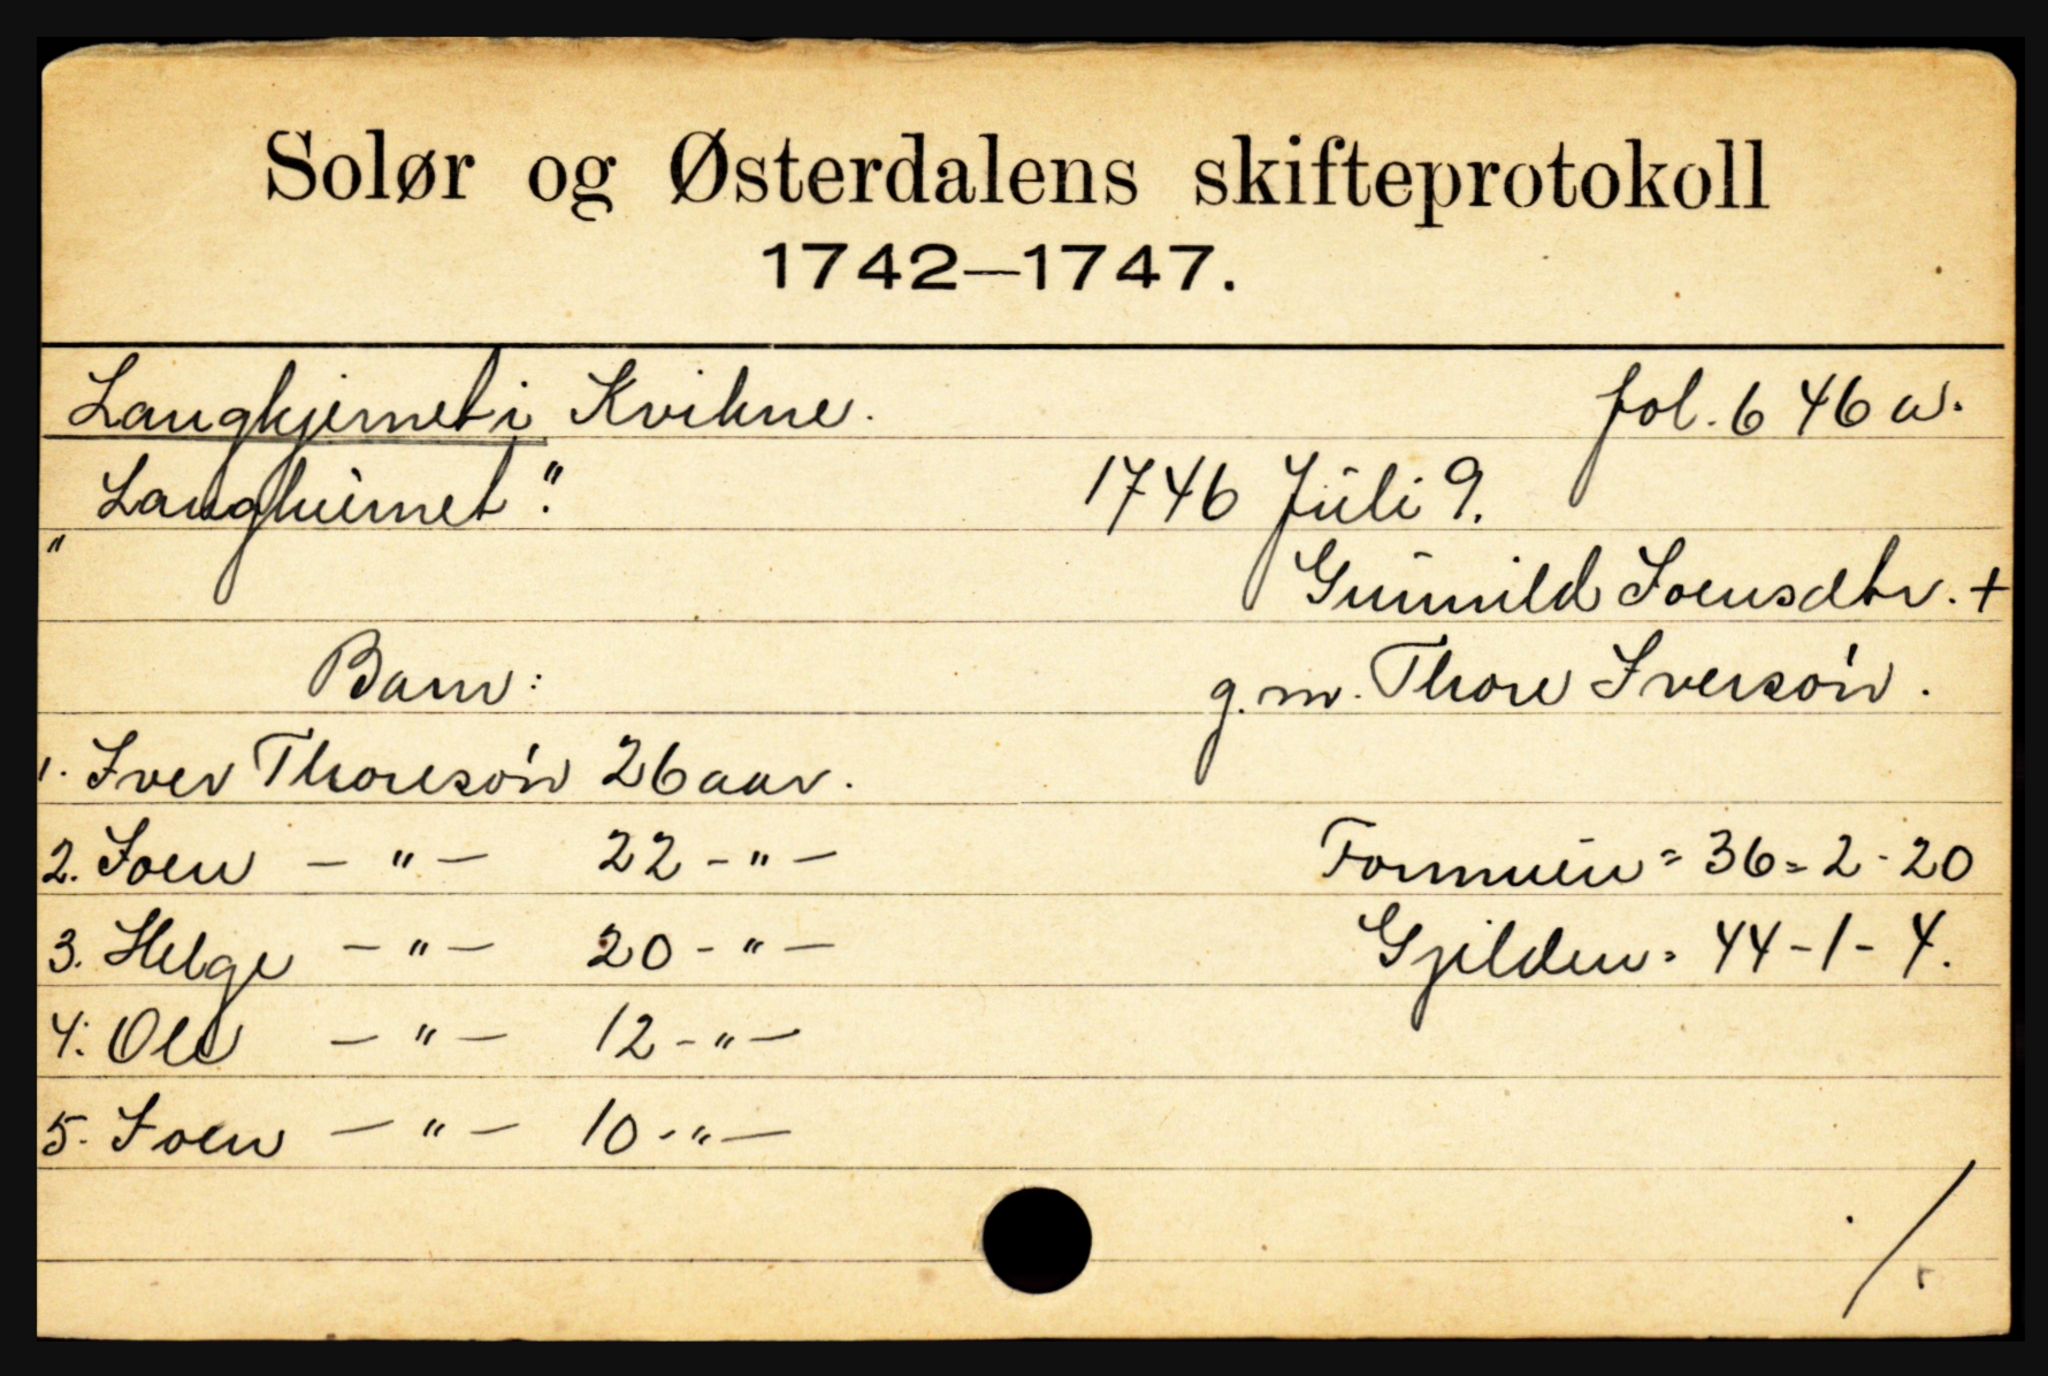 Solør og Østerdalens skifteprotokoll
1742—1747.
Langkjernet i Kvikne. fol. 646 a.
"Langkiernet". 1746 Juli 9.
Gunnild Joensdtr. +
Barn: g. m. Thore Iversøn.
1. Iver Thoresøn 26 aar.
2. Joen — " — 22 - " — Formuen = 36 = 2 - 20
3. Helge — " — 20 - " — Gjelden = 44 - 1 - 4.
4. Ole — " — 12 - " —
5. Joen — " — 10 - " —
./.